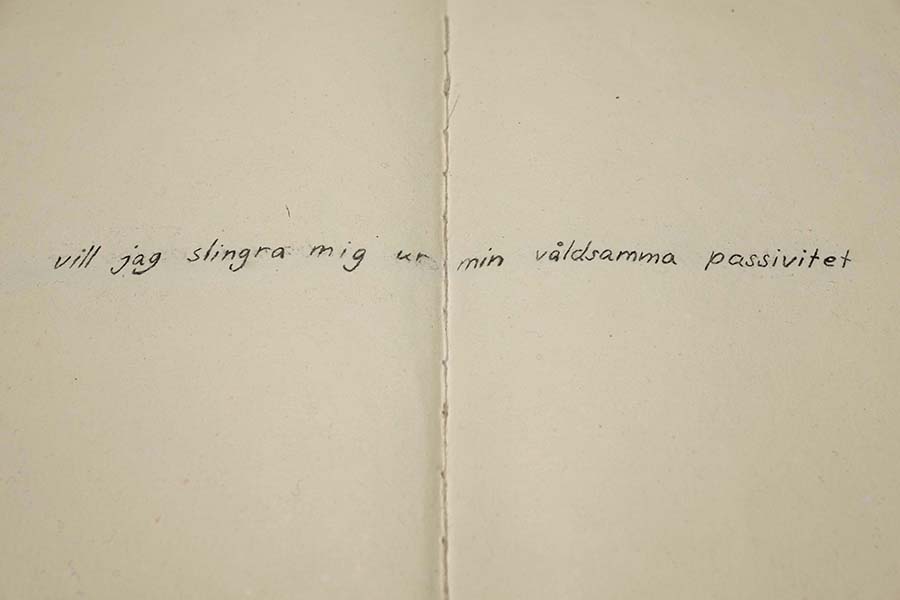 vill jag slingra mig ur min våldsamma passivitet